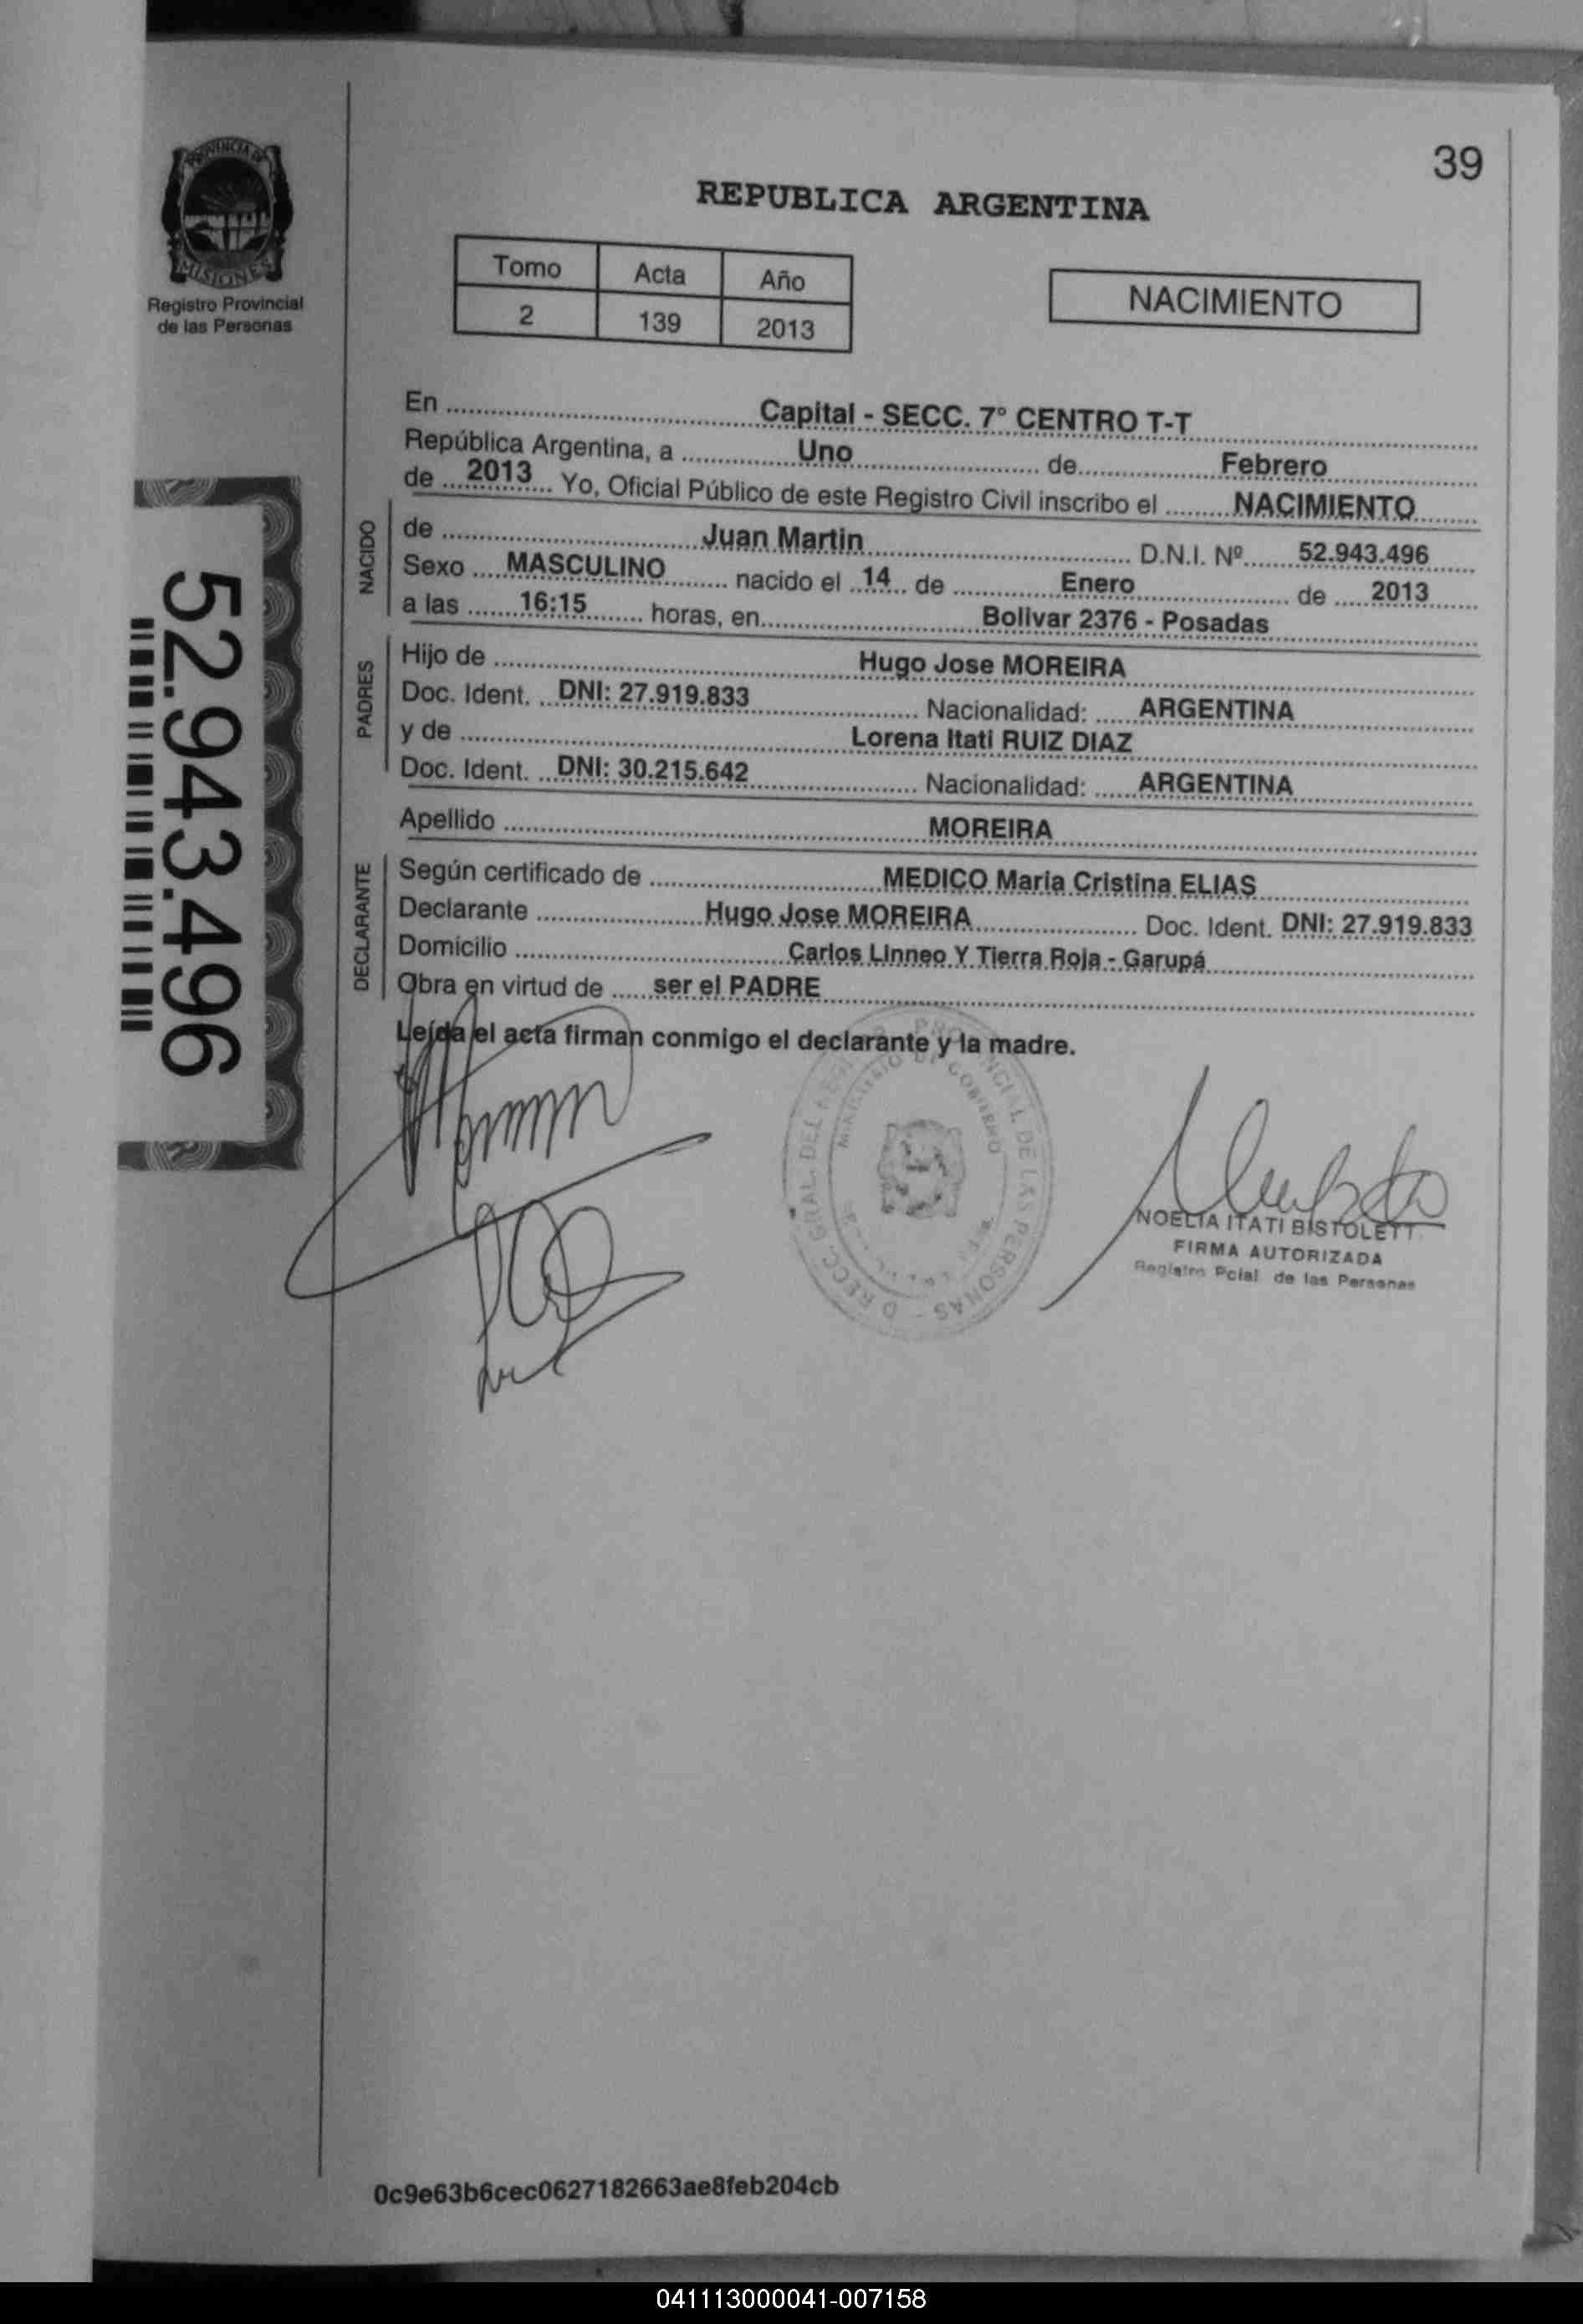 39
PROVINCIA DE
MISIONES
Registro Provincial
de las Personas
REPUBLICA ARGENTINA
Tomo Acta Año
2 139 2013
NACIMIENTO
En Capital - SECC. 7° CENTRO T-T
República Argentina, a Uno de Febrero
de 2013 Yo, Oficial Público de este Registro Civil inscribo el NACIMIENTO
NACIDO
de Juan Martin D.N.I. Nº 52.943.496
Sexo MASCULINO nacido el 14 de Enero de 2013
a las 16:15 horas, en Bolivar 2376 - Posadas
PADRES
Hijo de Hugo Jose MOREIRA
Doc. Ident. DNI: 27.919.833 Nacionalidad: ARGENTINA
y de Lorena Itati RUIZ DIAZ
Doc. Ident. DNI: 30.215.642 Nacionalidad: ARGENTINA
Apellido MOREIRA
DECLARANTE
Según certificado de MEDICO Maria Cristina ELIAS
Declarante Hugo Jose MOREIRA Doc. Ident. DNI: 27.919.833
Domicilio Carlos Linneo Y Tierra Roja - Garupá
Obra en virtud de ser el PADRE
Leída el acta firman conmigo el declarante y la madre.
52.943.496
MINISTERIO DE GOBIERNO
PROVINCIAL DE LAS PERSONAS
NOELIA ITATI BISTOLETT
FIRMA AUTORIZADA
Registro Pcial de las Personas
0c9e63b6cec0627182663ae8feb204cb
041113000041-007158